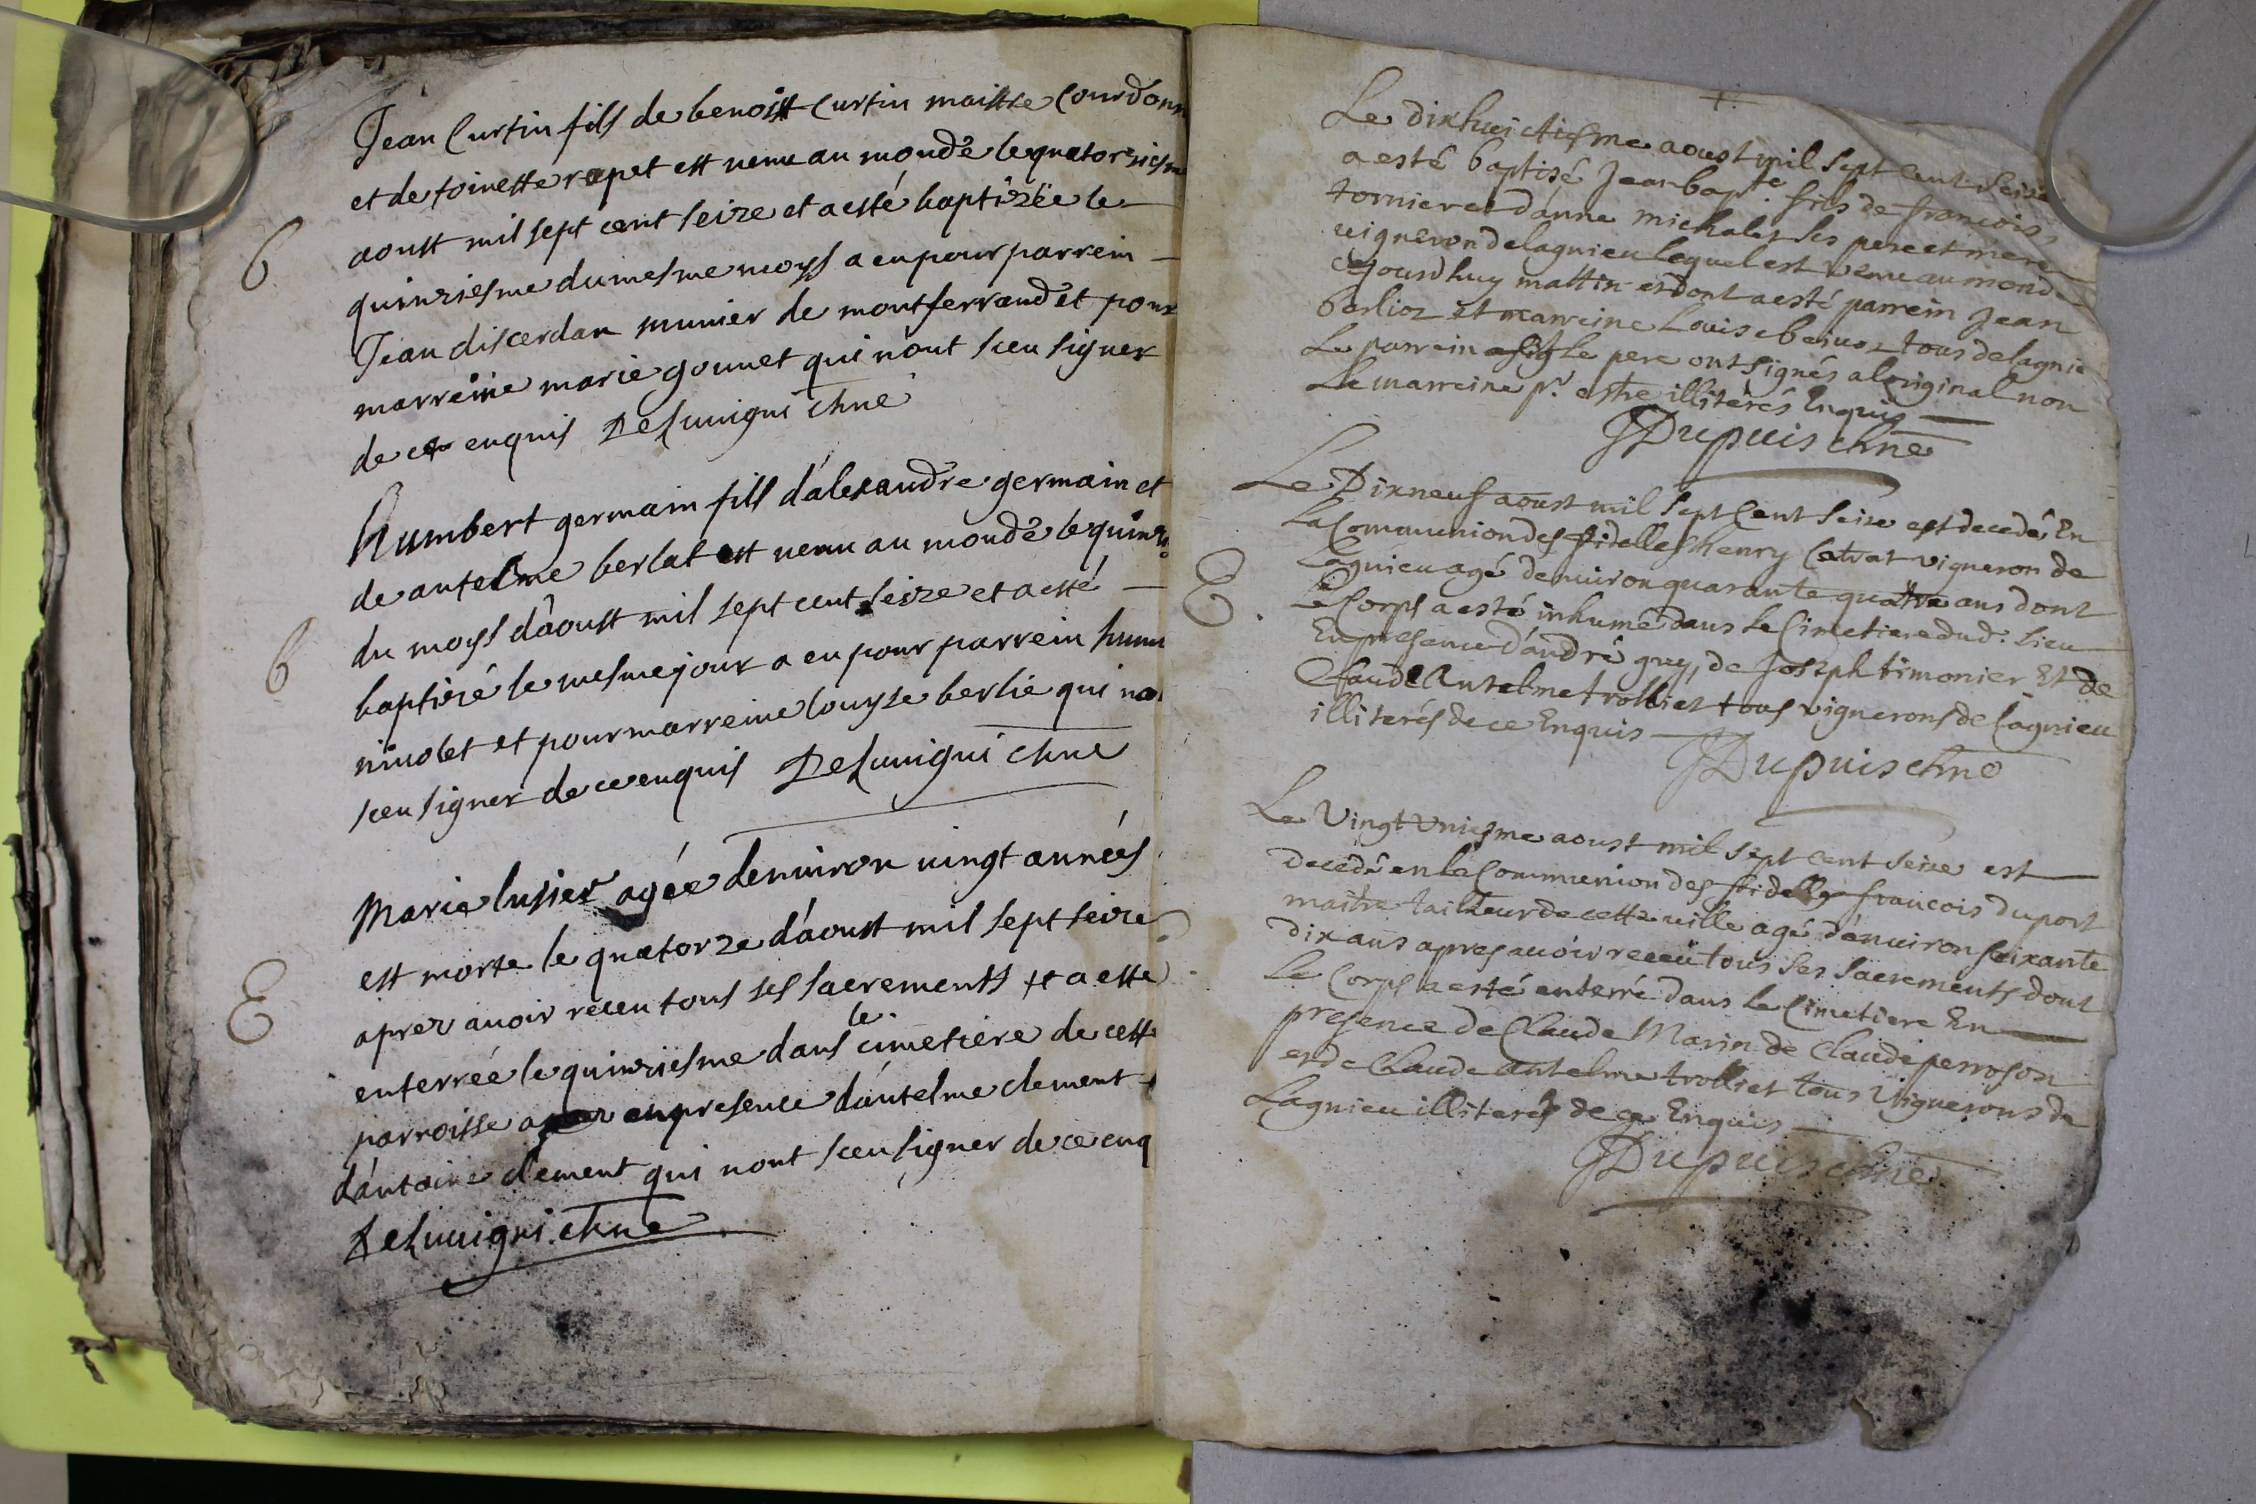 Jean Curtin fils de benoist Curtin maistre Courdonn
et de toinette rapet est venu au monde le quatorziesm
aoust mil sept cent seize et a esté baptizëe le
B
quinziesme du mesme moys a eu pour parrein
Jean discerdan munier de montferrand et pour
marreine marie gonnet qui n'ont sceu signer
de ce enquis Delunigni chne
humbert germain fils d'alexandre germain et
de antelme berlat est venu au monde le quinz
du moys d'aoust mil sept cent seize et a esté
B
baptizé le mesme jour a eu pour parrein hum
nivolet et pour marreine louyse berlie qui no
sceu signer de ce enquis Delunigni chne
Marie lusier agée denuiron vingt années
est morte le quatorze d'aoust mil sept seize
E
aprez avoir receu tous ses sacrements et a esté
enterrée le quinziesme dans le cimetiere de cette
parroisse en presence d'antelme clement
d'antoine clement qui nont sceu signer de ce enq
Delunigni chne
+
Le dixhuictiesme aoust mil sept cent seize
a esté baptisé Jean bapte. fils de francois
tornier et d'anne michalet ses pere et mere
vigneron de lagnieu lequel est venu au monde
cejourdhuy mattin et dont a esté parrein Jean
berlioz et marreine Louise beinoz tous de lagnie
Le parrein le pere ont signés a loriginal non
la marreine pr. estre illiterés Enquis
JDupuis chne
Le Dixneuf aoust mil sept Cent seize est decedé En
La Communion des fidelles henry Catrat vigneron de
E
Lagnieu agé denuiron quarante quatre ans dont
le Corps a esté inhumé dans le Cimetiere dud. Lieu
En presence d'andré guy, de Joseph timonier Et de
Claude Antelme trolliet tous vignerons de Lagnieu
illiterés de ce Enquis
JDupuis chne
Le Vingt Uniesme aoust mil sept cent seize est
decedé en la Communion des fidelles francois duport
maitre tailleur de cette ville agé d'enuiron seixante
dix ans apres avoir receü tous ses sacrements dont
Le Corps a esté enterré dans le Cimetiere En
presence de Claude Marin de Claude perroson
et de Claude antelme trolliet tous Vignerons de
Lagnieu illiterés de ce Enquis
JDupuis chne